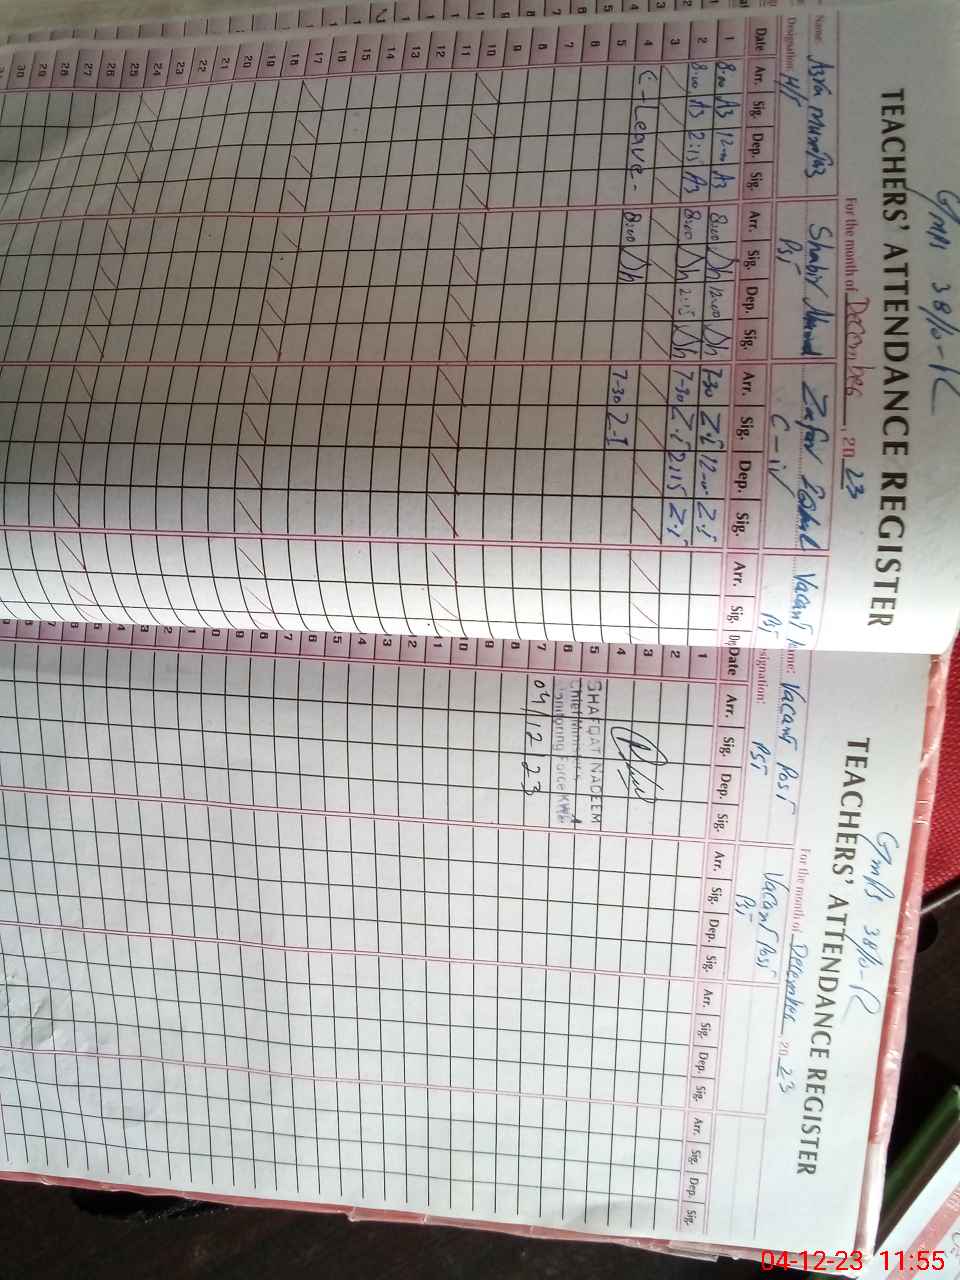 GMPS 38/10-R
TEACHERS' ATTENDANCE REGISTER
For the month of December, 2023
Name: Azra Mumtaz Shabir Ahmad Zafar Iqbal Vacant
Designation: H/T PST C-iv PST
Date Arr. Sig. Dep. Sig. Arr. Sig. Dep. Sig. Arr. Sig. Dep. Sig. Arr. Sig.
1 8:00 A3 12:00 A3 8:00 Sh 12:00 Sh 7-30 Z.I 12:00 Z.I
2 8:00 A3 2:15 A3 8:00 Sh 2:15 Sh 7-30 Z.I 2:15 Z.I
3
4 C-Leave- 8:00 Sh 7-30 Z-I
5
6
7
8
9
10
11
12
13
14
15
16
17
18
19
20
21
22
23
24
25
26
27
28
29
30
GMPS 38/10-R
TEACHERS' ATTENDANCE REGISTER
For the month of December, 2023
Name: Vacant Post Vacant Post
Designation: PST PST
Date Arr. Sig. Dep. Sig. Arr. Sig. Dep. Sig. Arr. Sig. Dep. Sig. Arr. Sig. Dep. Sig.
1
2
3
4
5
6
7
8
9
10
SHAFQAT NADEEM
Chief Minister's
Monitoring Force
04/12/23
04-12-23 11:55